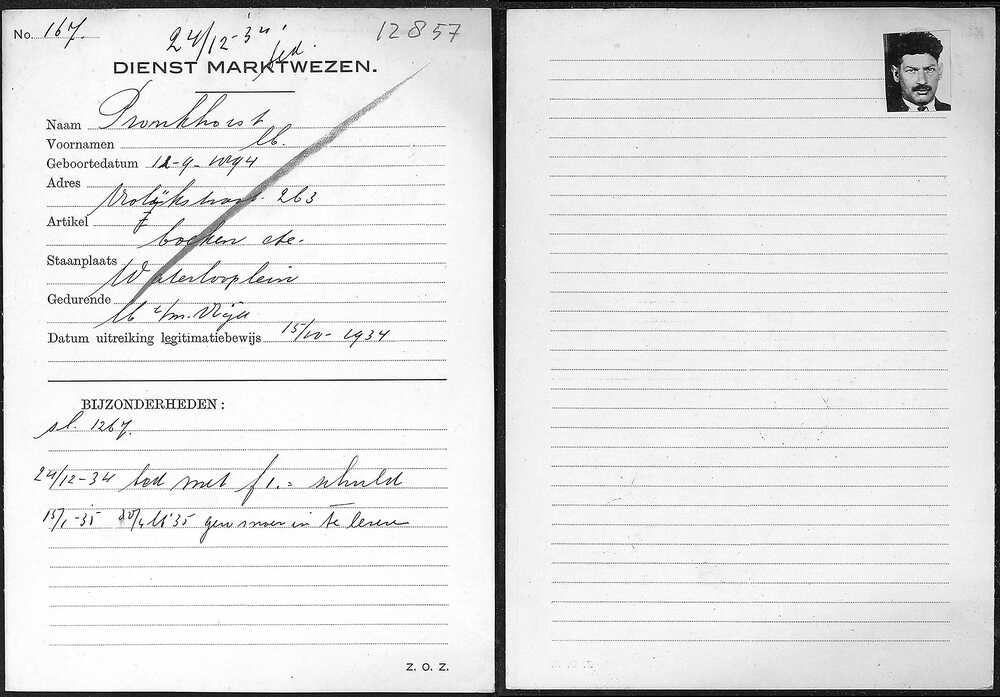 No. 167.
24/12-'34
12857
DIENST MARKTWEZEN.
Naam Pronkhorst
Voornamen M.
Geboortedatum 12-9-1894
Adres
Vrolijkstraat 263
Artikel
boeken etc.
Staanplaats
Waterlooplein
Gedurende
t/m. Vrij
Datum uitreiking legitimatiebewijs 15/10-1934
BIJZONDERHEDEN:
sl. 1267.
24/12-34 bed met f 1.= schuld
15/1-35 te leven
Z. O. Z.